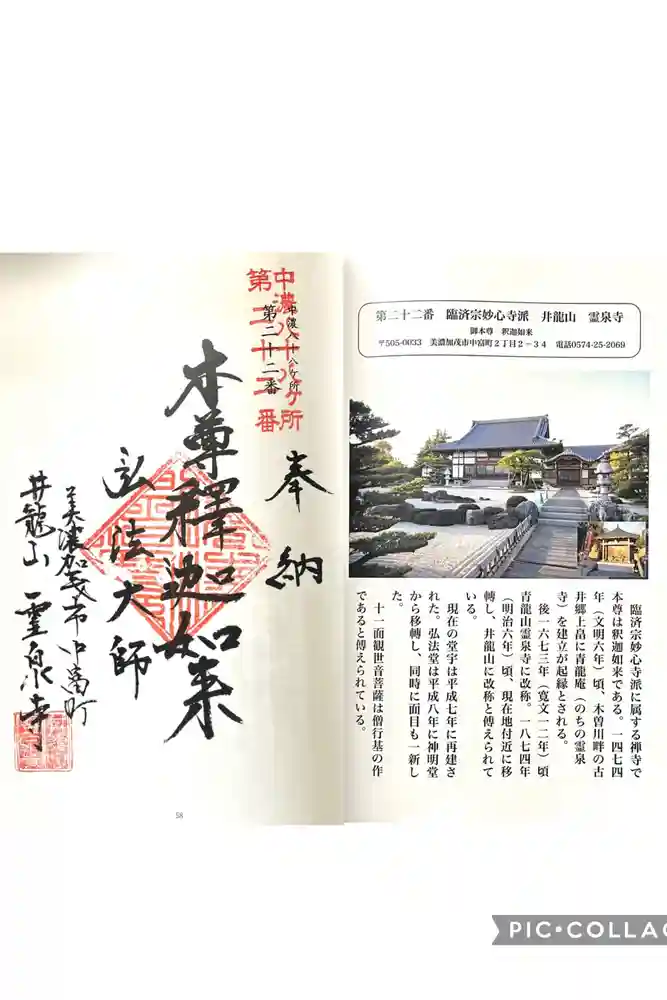 中濃八十八ヶ所
第二十二番
中濃八十八ヶ所
第二十二番
奉納
本尊釋迦如来
弘法大師
美濃加茂市中富町
井龍山 霊泉寺
58
第二十二番 臨済宗妙心寺派 井龍山 霊泉寺
御本尊 釈迦如来
〒505-0033 美濃加茂市中富町2丁目2-34 電話0574-25-2069
臨済宗妙心寺派に属する禅寺で
本尊は釈迦如来である。一四七四
年（文明六年）頃、木曽川畔の古
井郷上畠に青龍庵（のちの霊泉
寺）を建立が起縁とされる。
後一六七三年（寛文一二年）頃
青龍山霊泉寺に改称。一八七四年
（明治六年）頃、現在地付近に移
轉し、井龍山に改称と傳えられて
いる。
現在の堂宇は平成七年に再建さ
れた。弘法堂は平成八年に神明堂
から移轉し、同時に面目も一新し
た。
十一面観世音菩薩は僧行基の作
であると傳えられている。
PIC•COLLAG